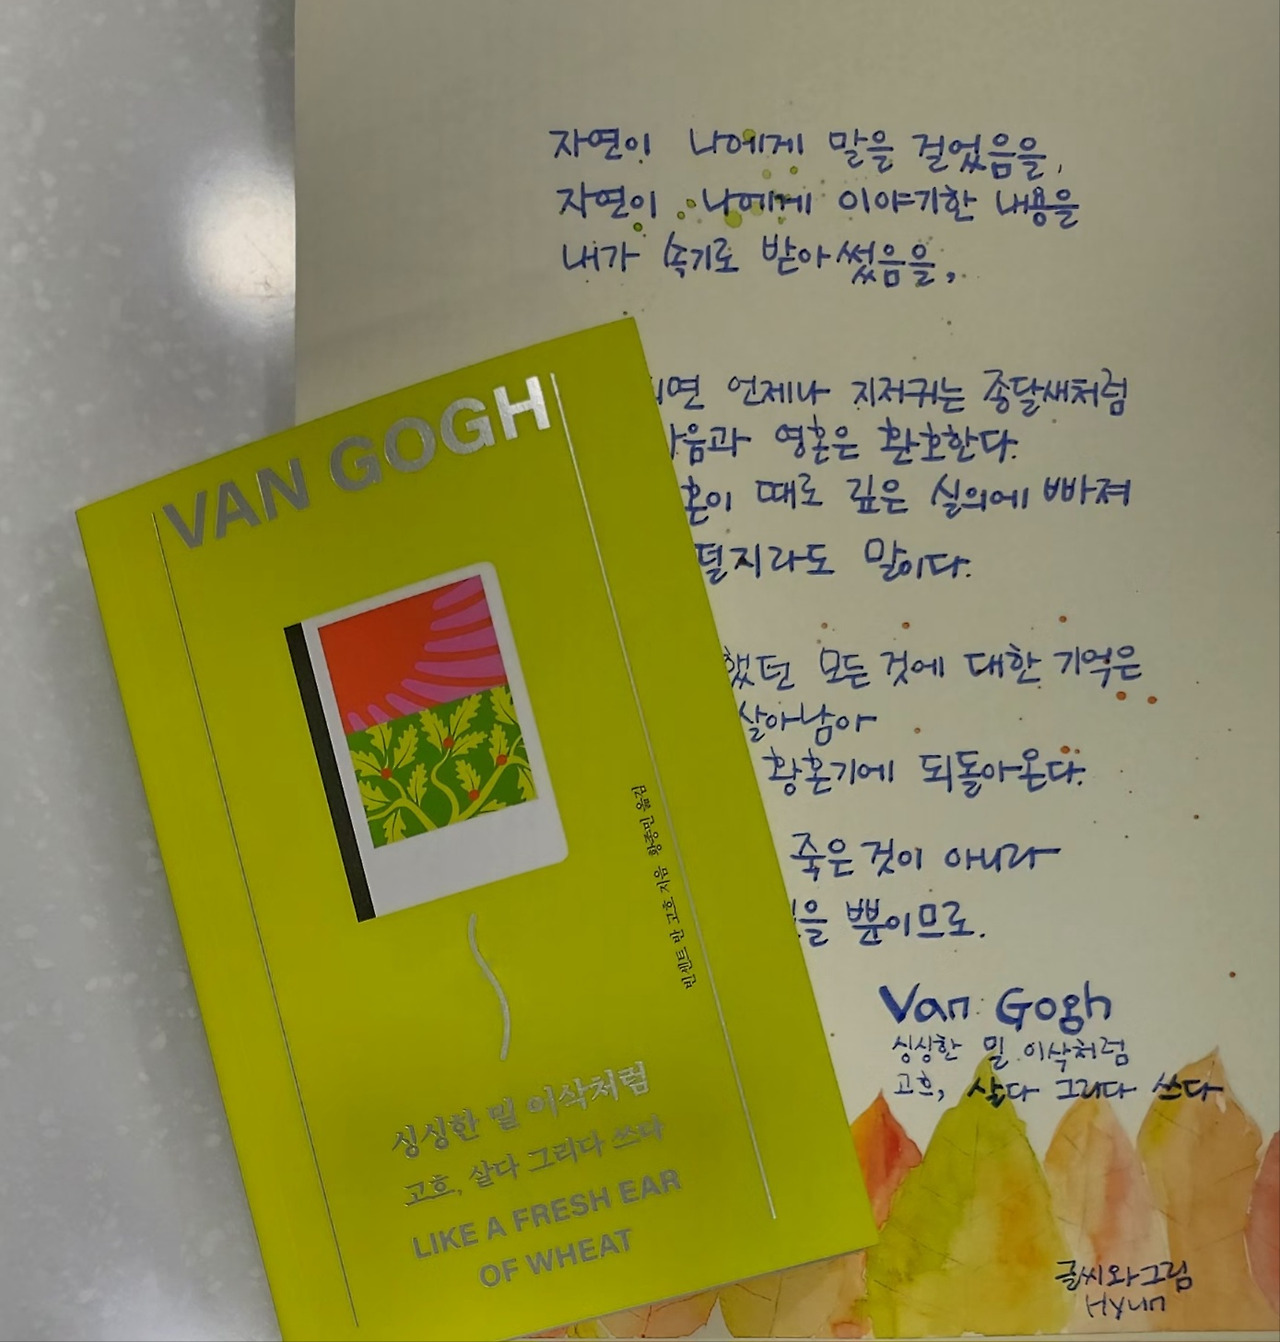 자연이 나에게 말을 걸었음을,
자연이 나에게 이야기한 내용을
내가 속기로 받아썼음을,
언제나 지저귀는 종달새처럼
영혼은 환호한다.
때로 깊은 실의에 빠져
말이다.
모든 것에 대한 기억은
살아남아
황혼기에 되돌아온다.
죽은 것이 아니라
뿐이므로.
Van Gogh
싱싱한 밀 이삭처럼
고흐, 살다 그리다 쓰다
글씨와 그림
Hyun
VAN GOGH
빈센트 반 고흐 지음 황종민 옮김
싱싱한 밀 이삭처럼
고흐, 살다 그리다 쓰다
LIKE A FRESH EAR
OF WHEAT